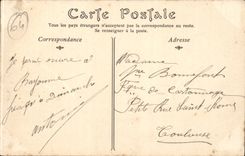 64
Carte Postale
Tous les pays étrangers n'acceptent pas la correspondance au recto.
Se renseigner à la poste.
Correspondance
Adresse
Je serai encore à
Bayonne
jusqu'à Dimanche
Antonin
Madame
Bonnefont
Fque de Cartonnage
Petite Rue Saint
Toulouse